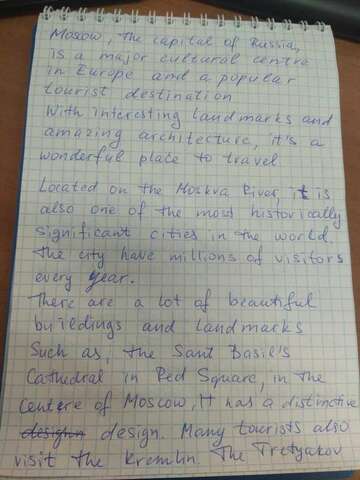 Moscow, the capital of Russia,
is a major cultural centre
in Europe and a popular
tourist destination
With interesting landmarks and
amazing architecture, it's a
wonderful place to travel
Located on the Moskva River, it is
also one of the most historically
significant cities in the world.
The city have millions of visitors
every year.
There are a lot of beautiful
buildings and landmarks
Such as, the Sant Basil's
Cathedral in Red Square, in the
Centere of Moscow, It has a distinctive
design design. Many tourists also
visit the Kremlin. The Tretyakov